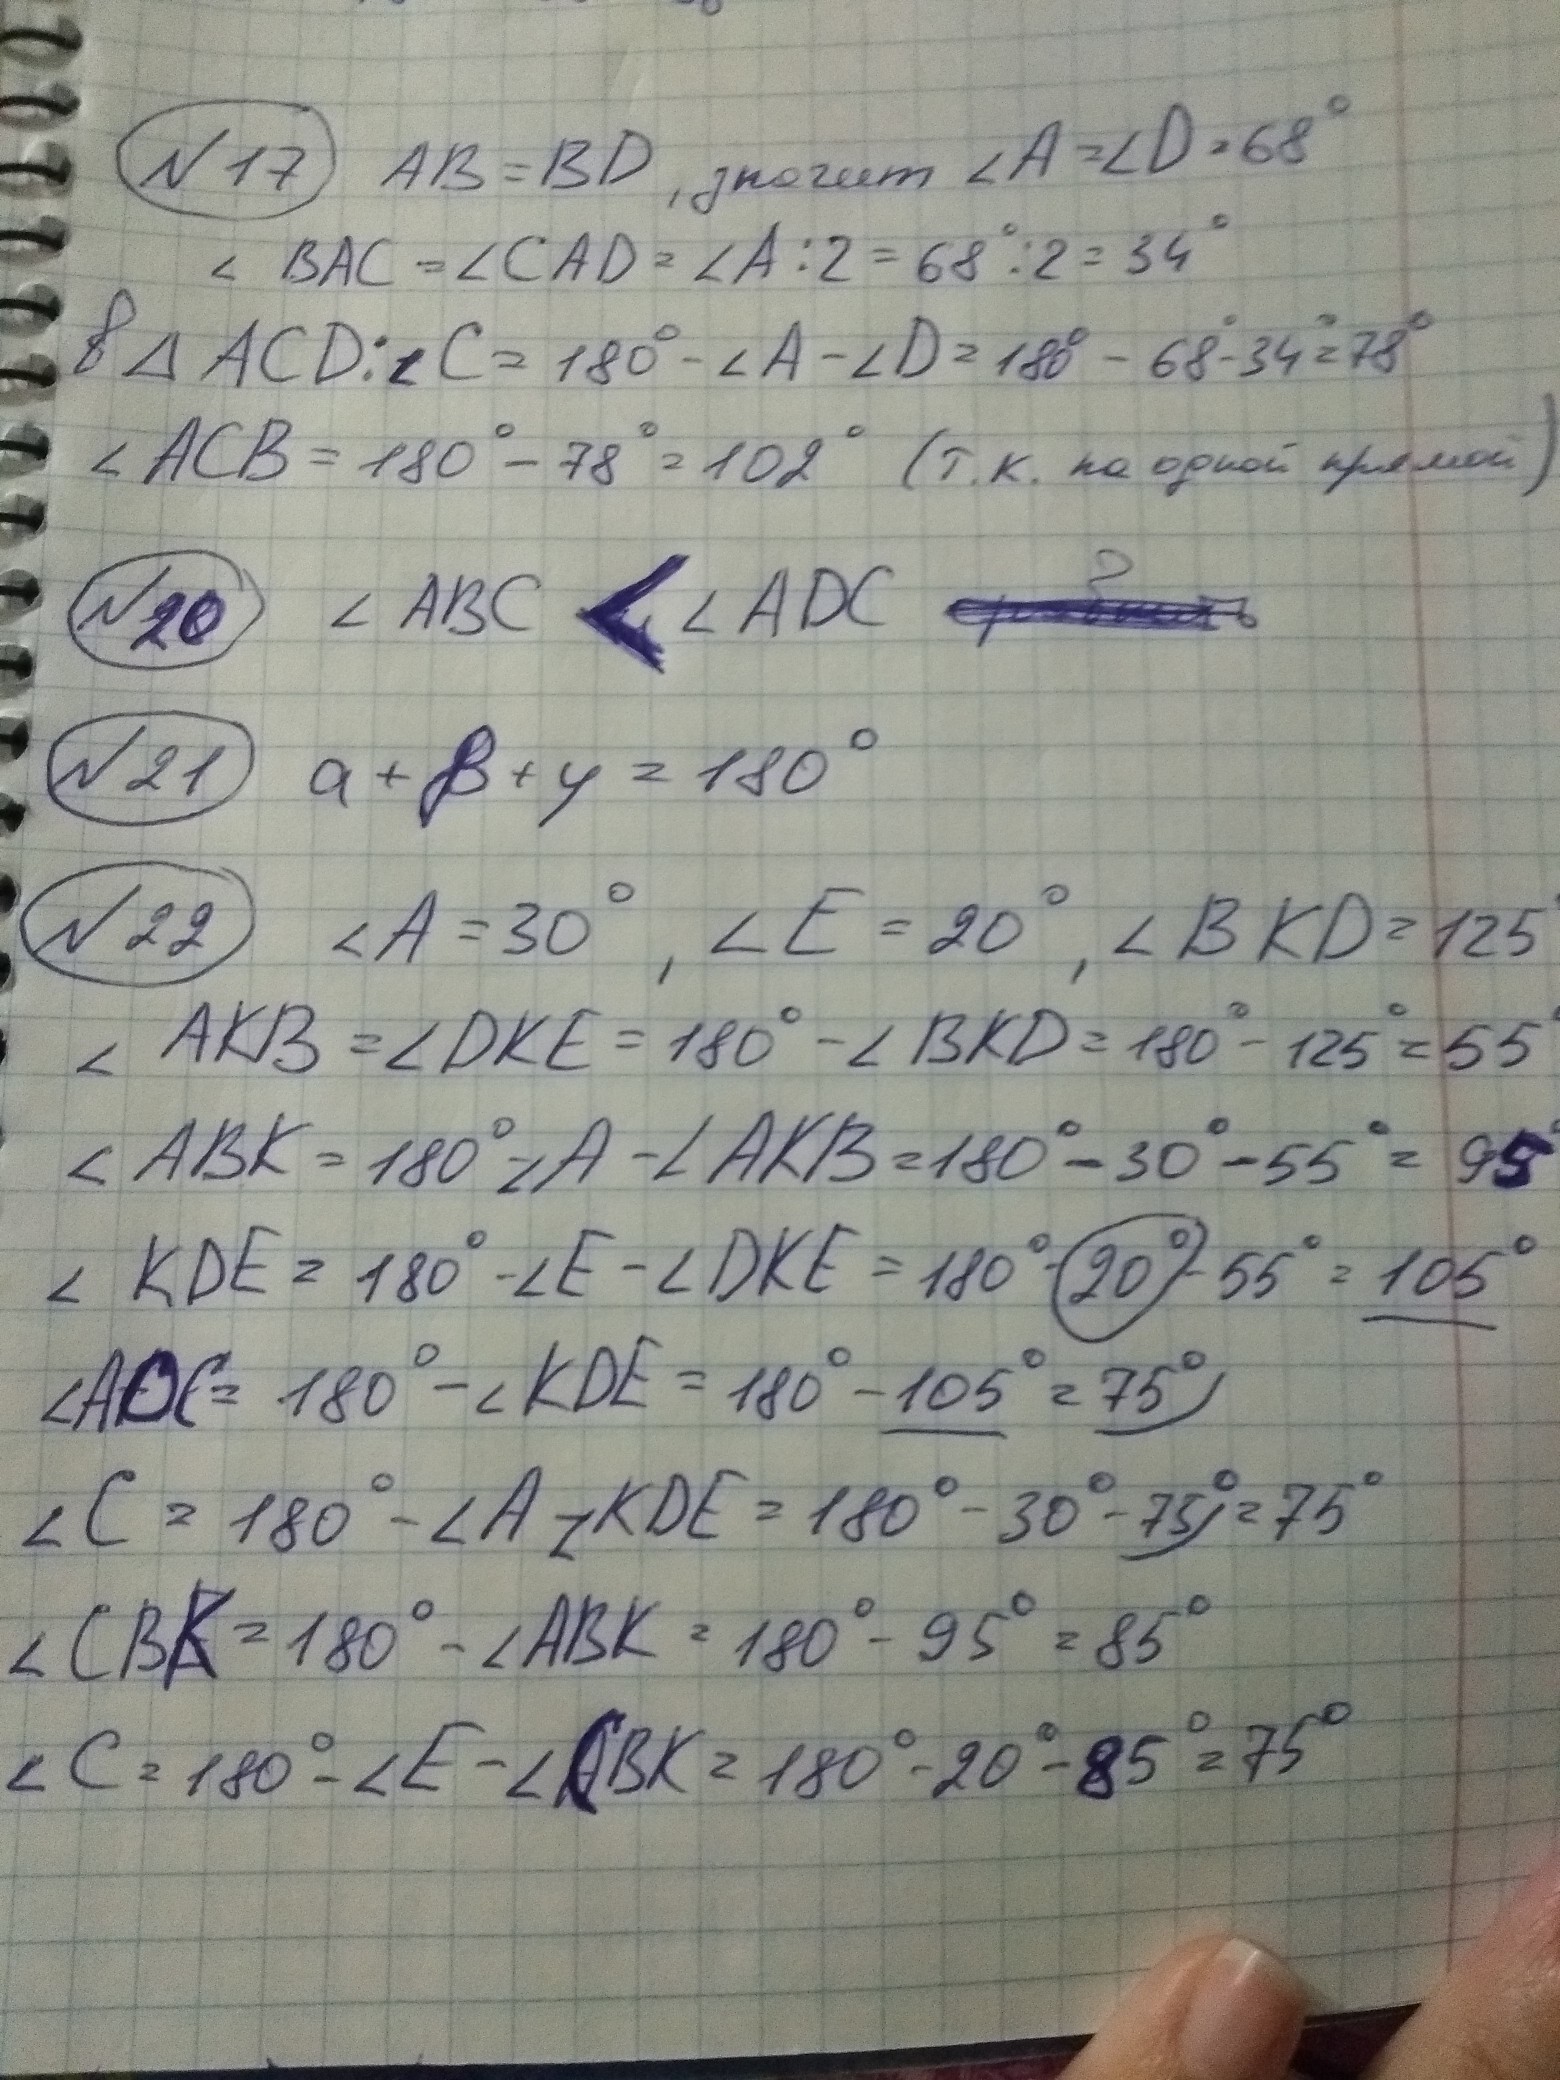 N17 AB = BD, значит ∠A = ∠D = 68°
∠BAC = ∠CAD = ∠A : 2 = 68° : 2 = 34°
В △ ACD: ∠C = 180° - ∠A - ∠D = 180° - 68° - 34° = 78°
∠ACB = 180° - 78° = 102° (т.к. на одной прямой)
N20 ∠ABC < ∠ADC ?
N21 a + β + y = 180°
N22 ∠A = 30°, ∠E = 20°, ∠BKD = 125°
∠AKB = ∠DKE = 180° - ∠BKD = 180° - 125° = 55°
∠ABK = 180° - ∠A - ∠AKB = 180° - 30° - 55° = 95°
∠KDE = 180° - ∠E - ∠DKE = 180° - 20° - 55° = 105°
∠ADC = 180° - ∠KDE = 180° - 105° = 75°
∠C = 180° - ∠A - ∠KDE = 180° - 30° - 75° = 75°
∠CBK = 180° - ∠ABK = 180° - 95° = 85°
∠C = 180° - ∠E - ∠CBK = 180° - 20° - 85° = 75°